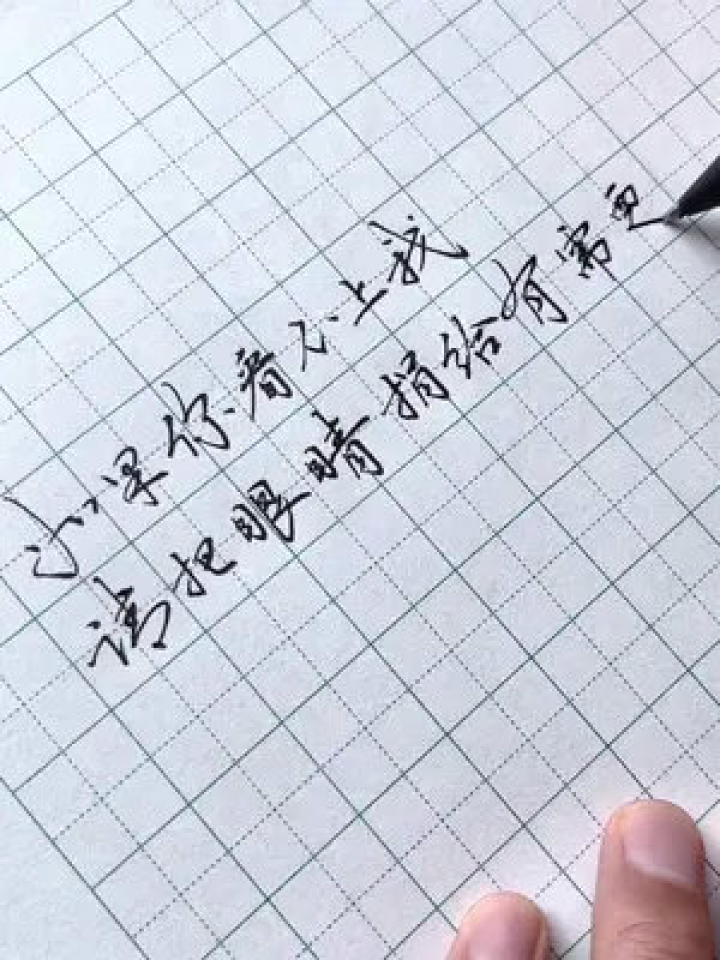 如果你看不上我
请把眼睛捐给有需